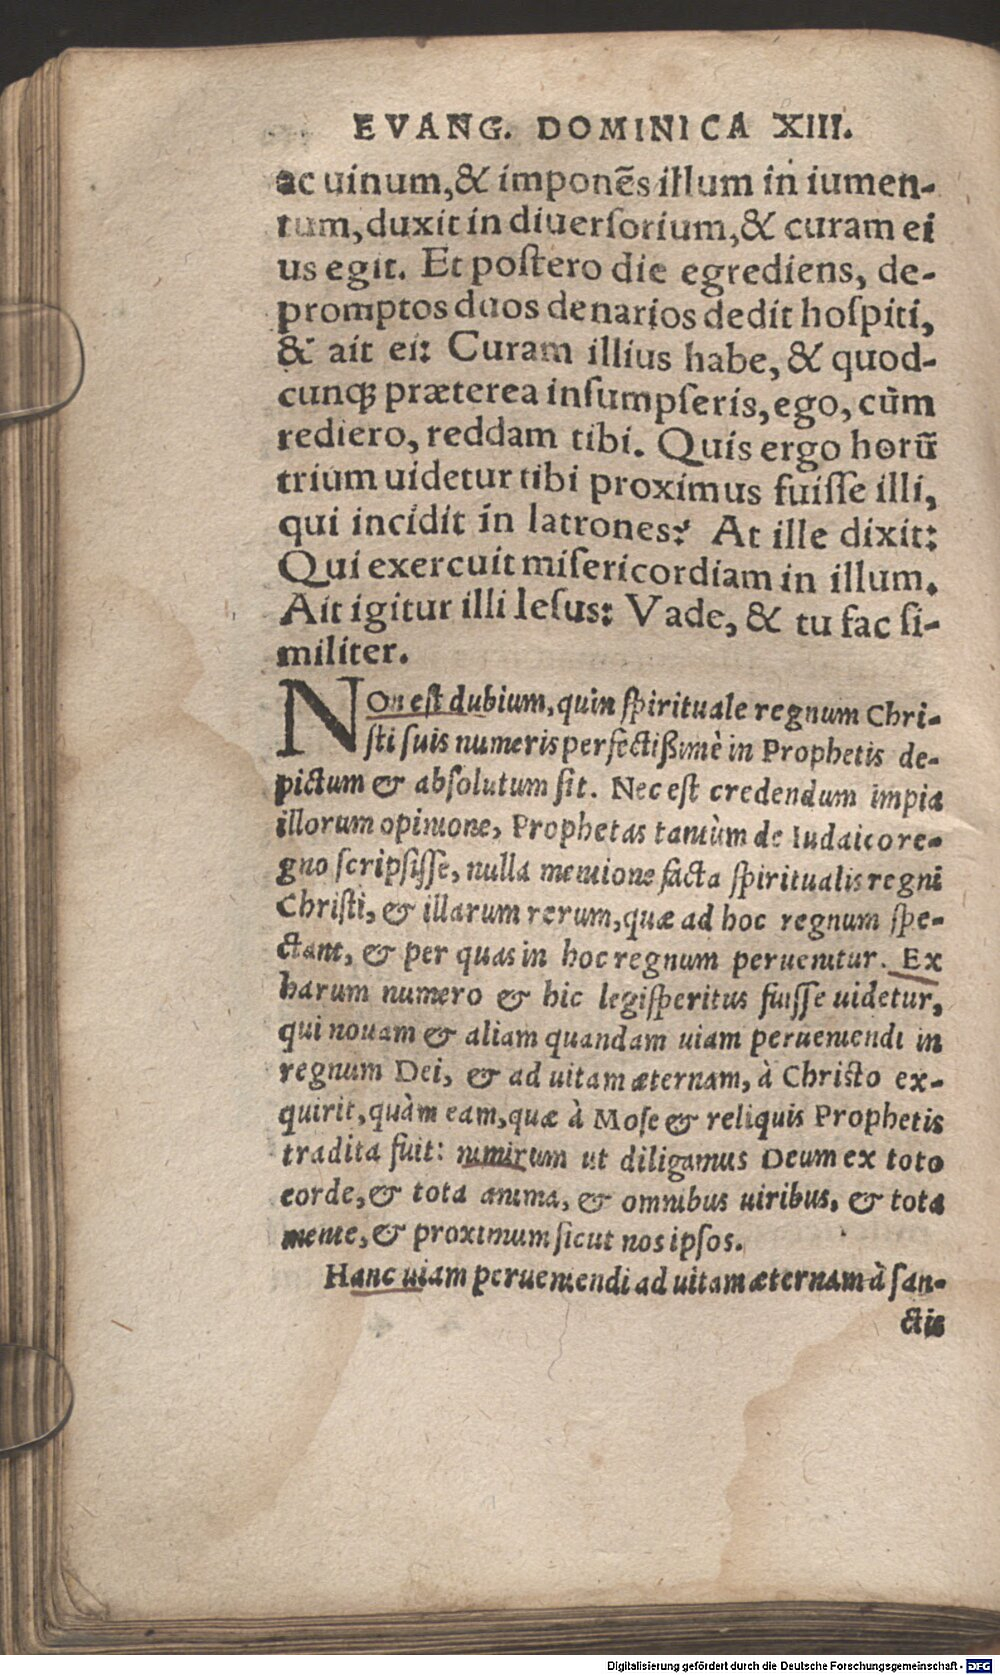 EVANG. DOMINICA XIII.
ac uinum, & imponēs illum in iumen-
tum, duxit in diuersorium, & curam ei
us egit. Et postero die egrediens, de-
promptos duos denarios dedit hospiti,
& ait ei: Curam illius habe, & quod-
cunq; præterea insumpseris, ego, cùm
rediero, reddam tibi. Quis ergo horū
trium uidetur tibi proximus fuisse illi,
qui incidit in latrones? At ille dixit:
Qui exercuit misericordiam in illum.
Ait igitur illi Iesus: Vade, & tu fac si-
militer.
NOn est dubium, quin spirituale regnum Chri-
sti suis numeris perfectißimè in Prophetis de-
pictum & absolutum sit. Nec est credendum impia
illorum opinione, Prophetas tantùm de Iudaico re-
gno scripsisse, nulla mentione facta spiritualis regni
Christi, & illarum rerum, quæ ad hoc regnum spe-
ctant, & per quas in hoc regnum peruenitur. Ex
harum numero & hic legisperitus fuisse uidetur,
qui nouam & aliam quandam uiam perueniendi in
regnum Dei, & ad uitam æternam, à Christo ex-
quirit, quàm eam, quæ à Mose & reliquis Prophetis
tradita fuit: nimirum ut diligamus Deum ex toto
corde, & tota anima, & omnibus uiribus, & tota
mente, & proximum sicut nos ipsos.
Hanc uiam perueniendi ad uitam æternam à san-
ctis
Digitalisierung gefördert durch die Deutsche Forschungsgemeinschaft - DFG